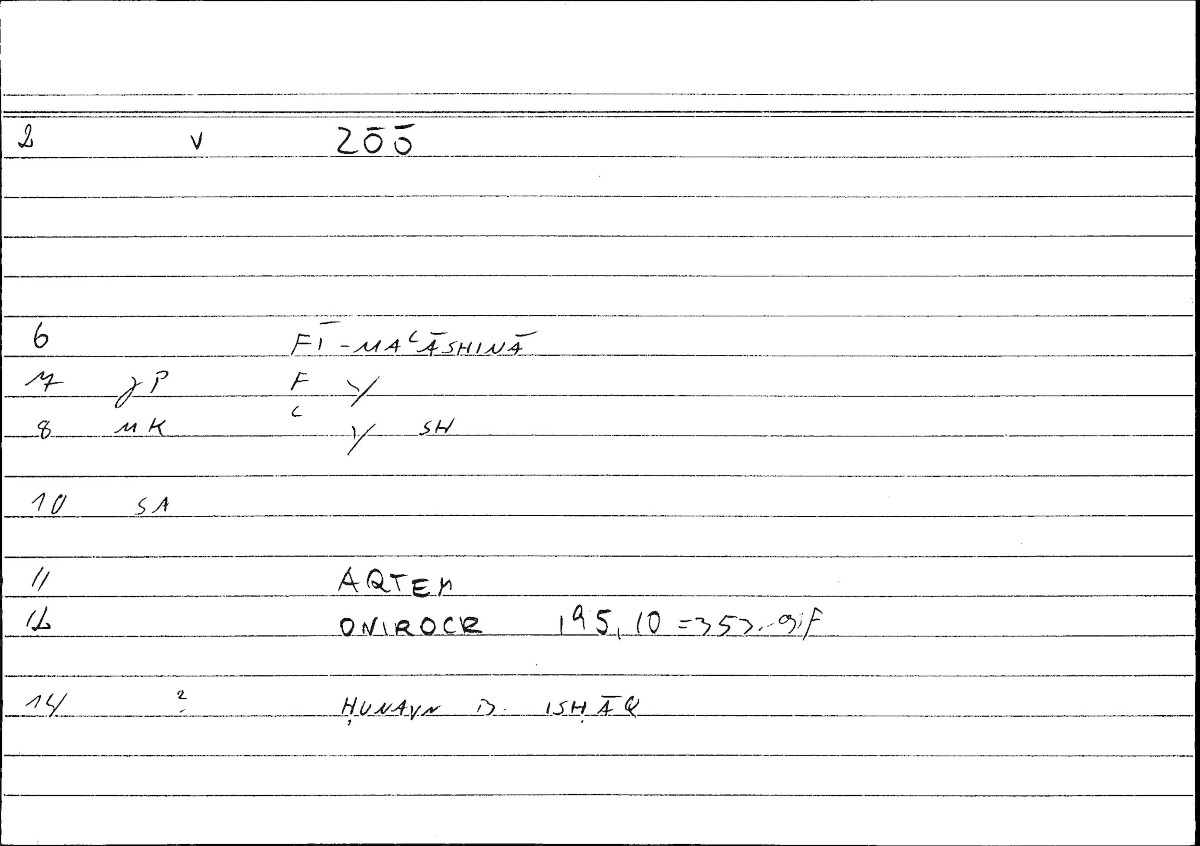 2 v 200
6 FĪ-MAʿĀSHINĀ
7 γP F γ
8 MK ʿ γ SH
10 SA
11 AQTEM
12 ONIROCR 195,10 = 353.9f
14 ? ḤUNAYN B. ISḤĀQ